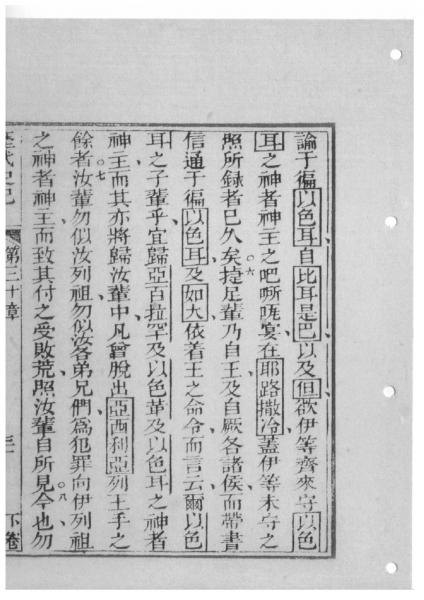 論于徧以色耳自比耳是巴以及但欲伊等齊來守以色
耳之神者神主之吧㗭㕭宴在耶路撒冷蓋伊等未守之
照所錄者已久矣○六捷足輩乃自王及自厥各諸侯而帶書
信通于徧以色耳及如大依着王之命令而言云爾以色
耳之子輩乎宜歸亞百拉罕及以色革及以色耳之神者
神主而其亦將歸汝輩中凡曾脫出亞西利亞列王手之
餘者○七汝輩勿似汝列祖勿似汝各弟兄們為犯罪向伊列祖
之神者神主而致其付之受敗荒照汝輩自所見今○八也勿
第三十章
下卷